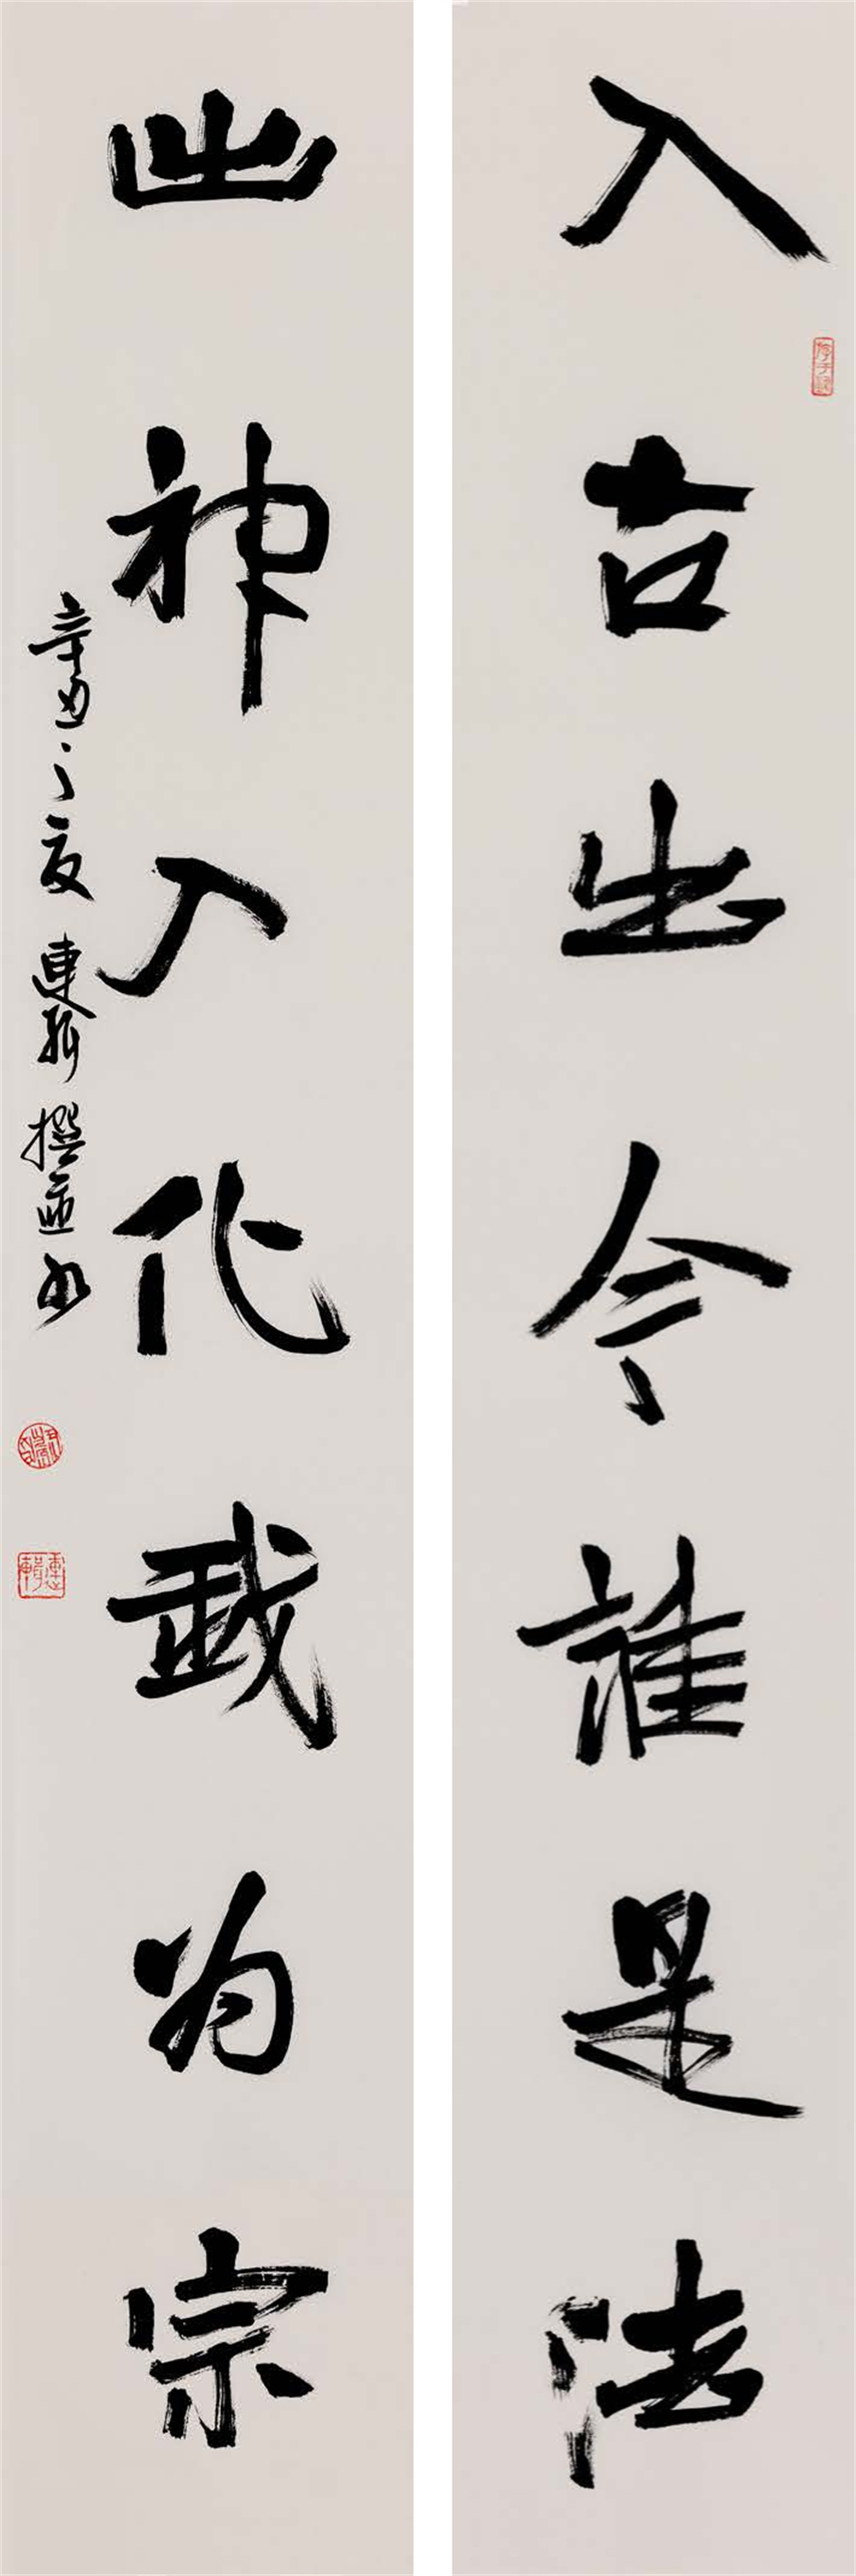 入古出今誰是法
出神入化我为宗
辛丑之夏連軒撰並书